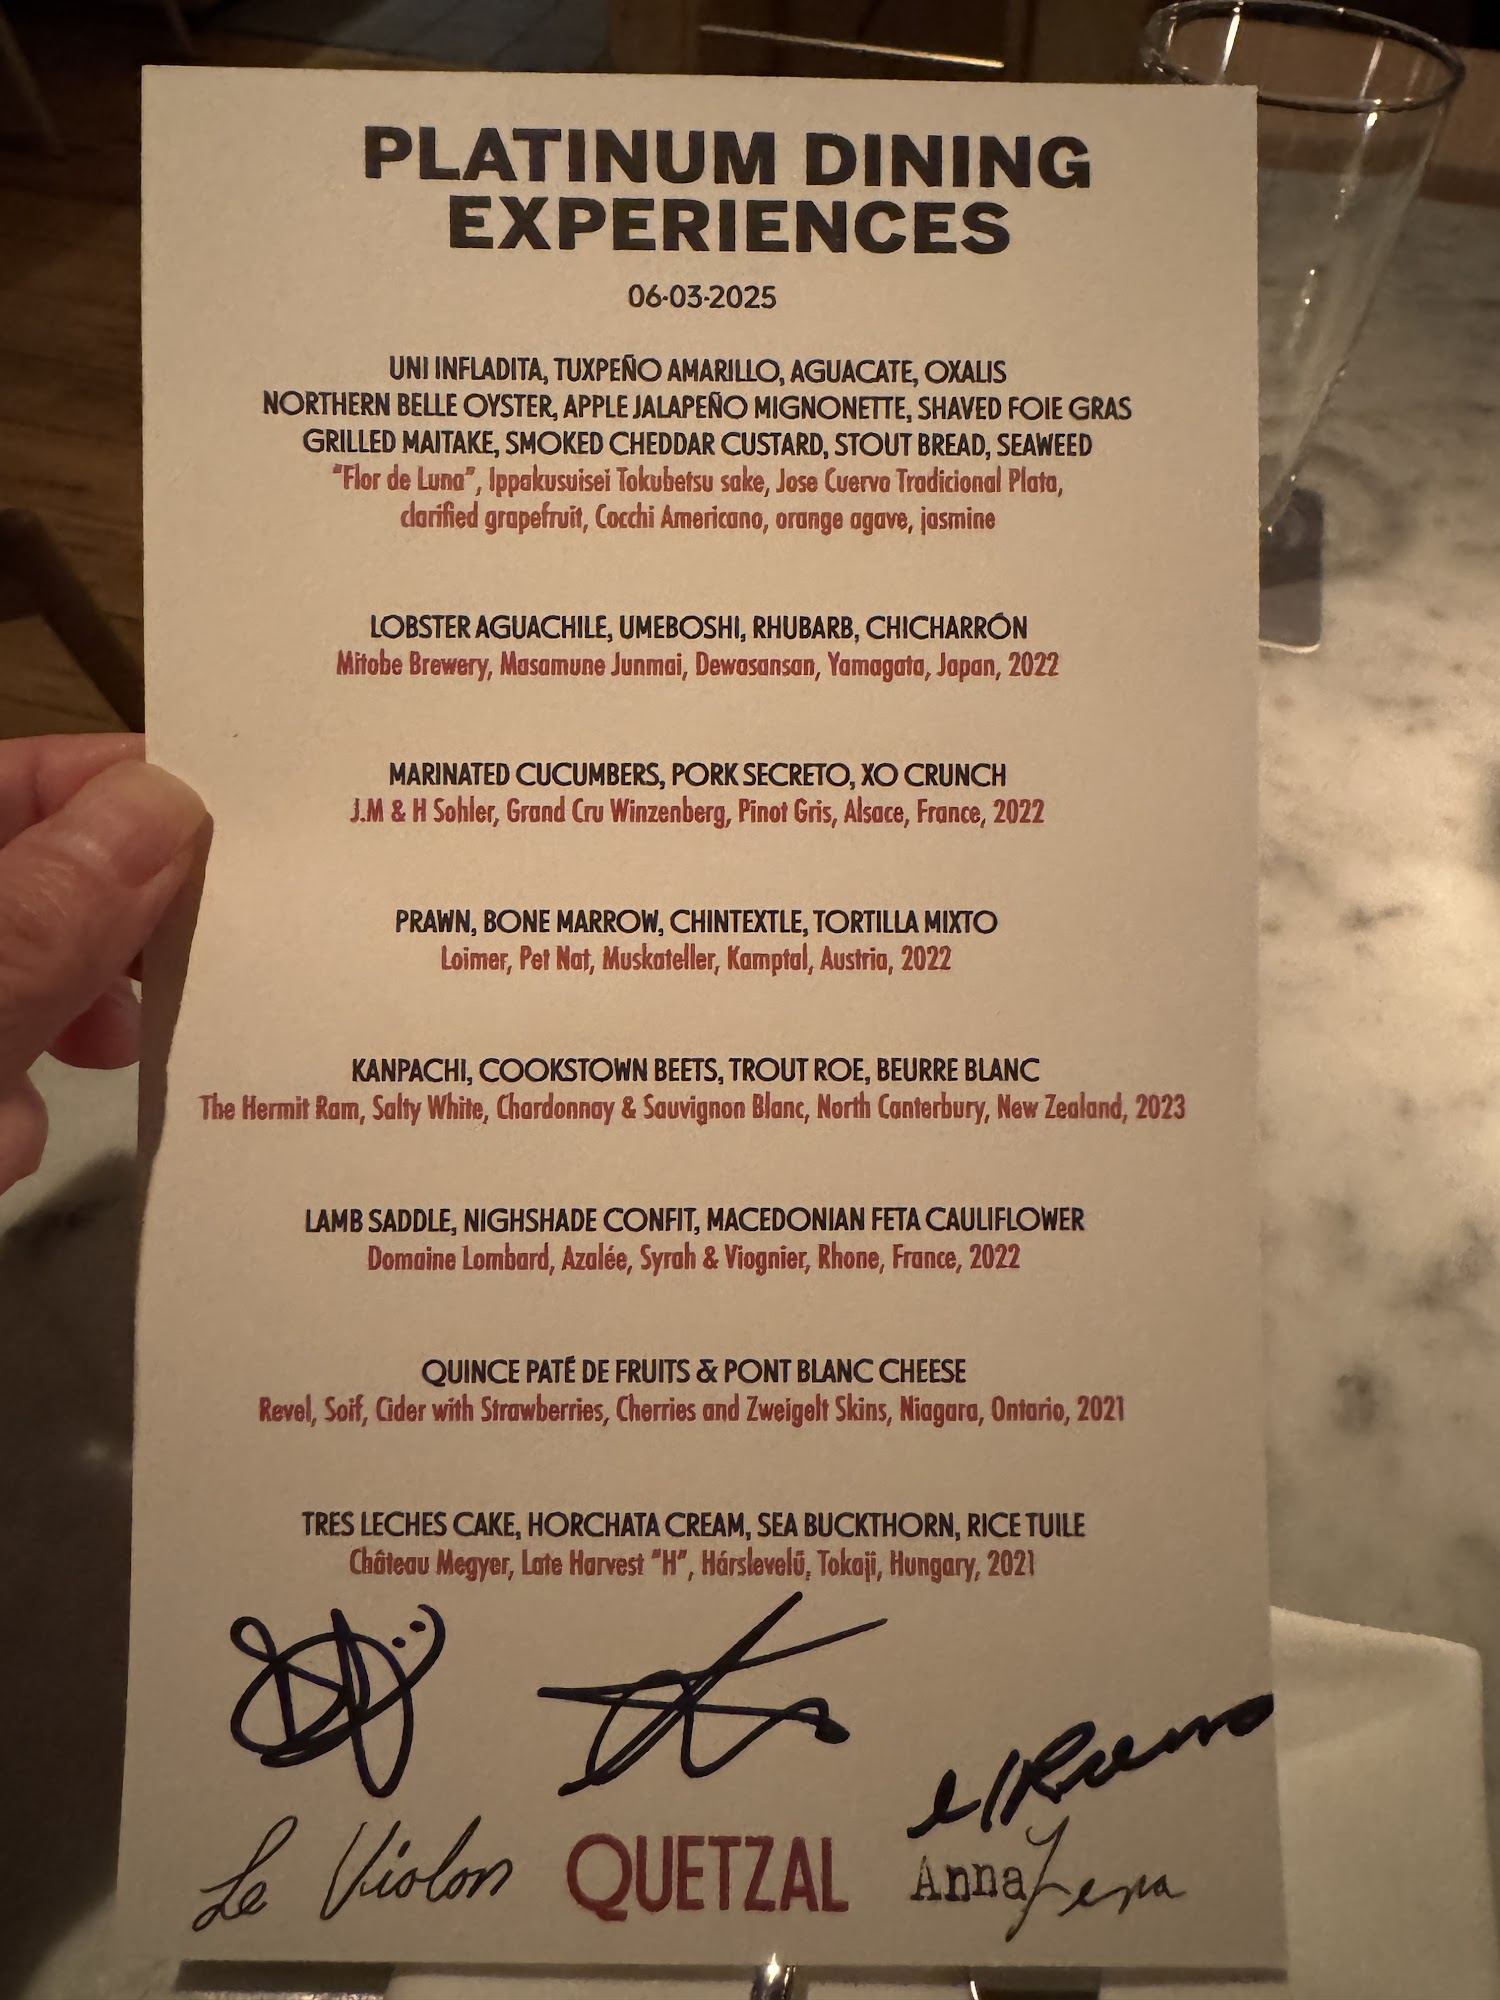 PLATINUM DINING
EXPERIENCES
06-03-2025
UNI INFLADITA, TUXPEÑO AMARILLO, AGUACATE, OXALIS
NORTHERN BELLE OYSTER, APPLE JALAPEÑO MIGNONETTE, SHAVED FOIE GRAS
GRILLED MAITAKE, SMOKED CHEDDAR CUSTARD, STOUT BREAD, SEAWEED
"Flor de Luna", Ippakusuisei Tokubetsu sake, Jose Cuervo Tradicional Plata,
clarified grapefruit, Cocchi Americano, orange agave, jasmine
LOBSTER AGUACHILE, UMEBOSHI, RHUBARB, CHICHARRÓN
Mitobe Brewery, Masamune Junmai, Dewasansan, Yamagata, Japan, 2022
MARINATED CUCUMBERS, PORK SECRETO, XO CRUNCH
J.M & H Sohler, Grand Cru Winzenberg, Pinot Gris, Alsace, France, 2022
PRAWN, BONE MARROW, CHINTEXTLE, TORTILLA MIXTO
Loimer, Pet Nat, Muskateller, Kamptal, Austria, 2022
KANPACHI, COOKSTOWN BEETS, TROUT ROE, BEURRE BLANC
The Hermit Ram, Salty White, Chardonnay & Sauvignon Blanc, North Canterbury, New Zealand, 2023
LAMB SADDLE, NIGHSHADE CONFIT, MACEDONIAN FETA CAULIFLOWER
Domaine Lombard, Azalée, Syrah & Viognier, Rhone, France, 2022
QUINCE PATÉ DE FRUITS & PONT BLANC CHEESE
Revel, Soif, Cider with Strawberries, Cherries and Zweigelt Skins, Niagara, Ontario, 2021
TRES LECHES CAKE, HORCHATA CREAM, SEA BUCKTHORN, RICE TUILE
Château Megyer, Late Harvest "H", Hárslevelű, Tokaji, Hungary, 2021
Le Violon QUETZAL AnnaLena